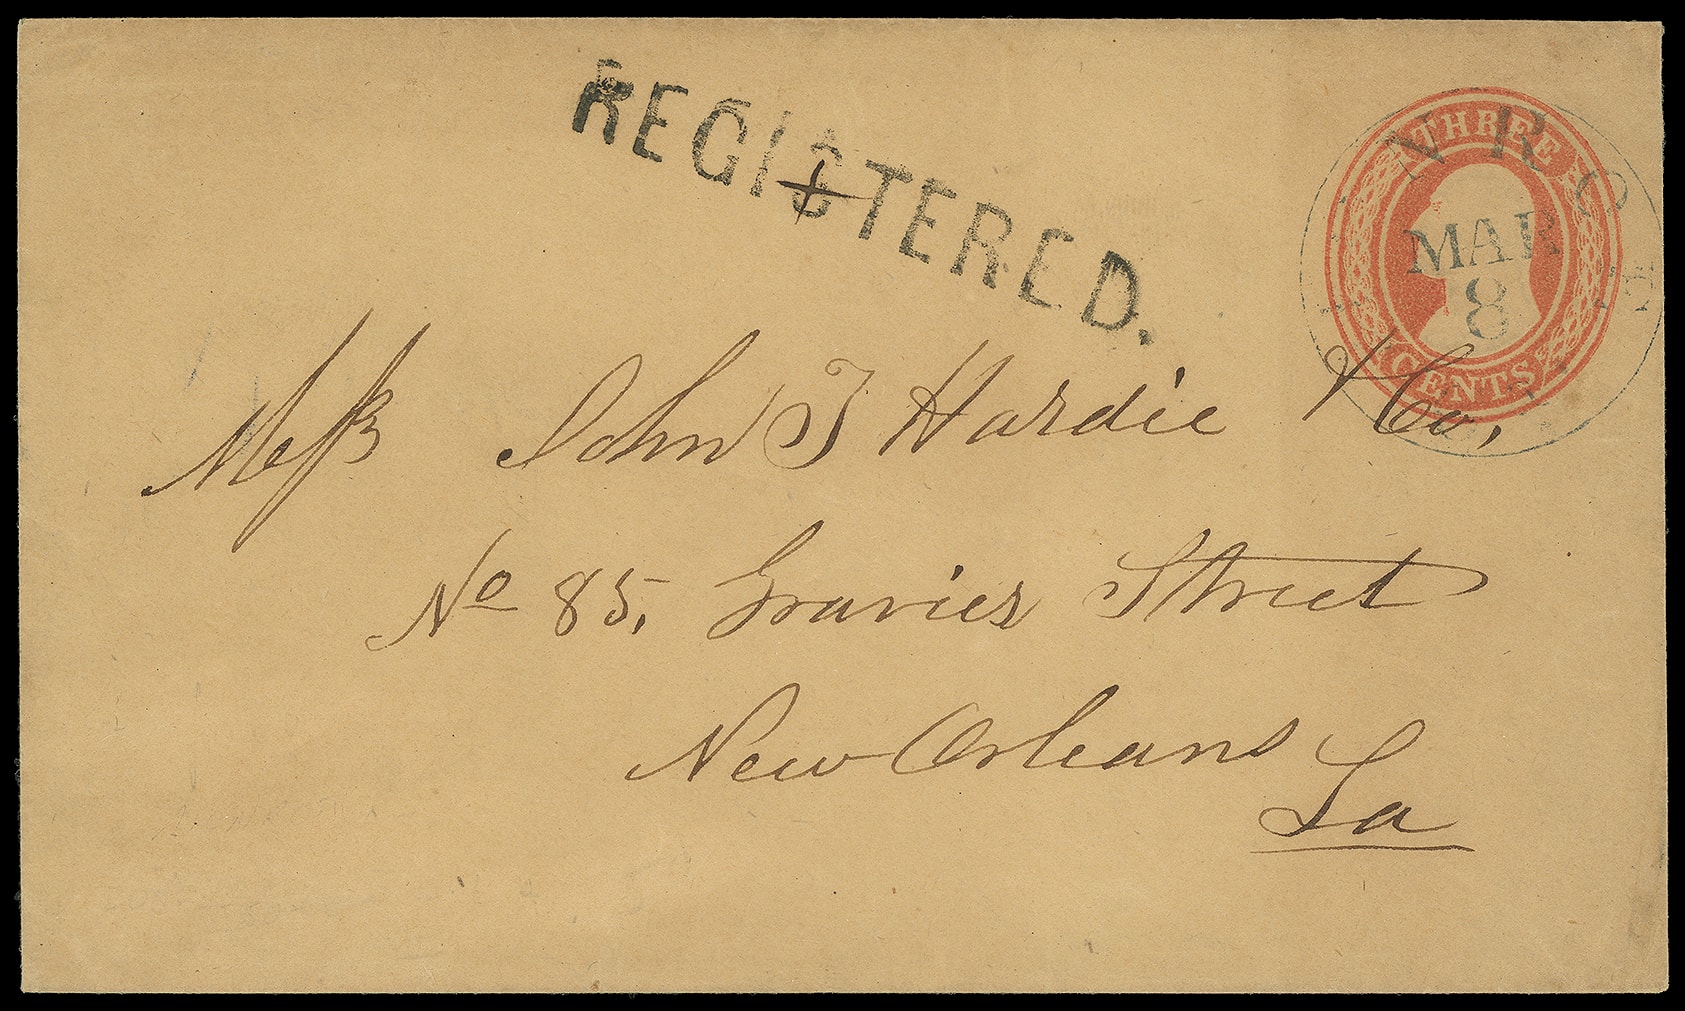 REGISTERED.
THREE
CENTS
MAR
8
Mess John T Hardie & Co,
No 85, Gravier Street
New Orleans
La